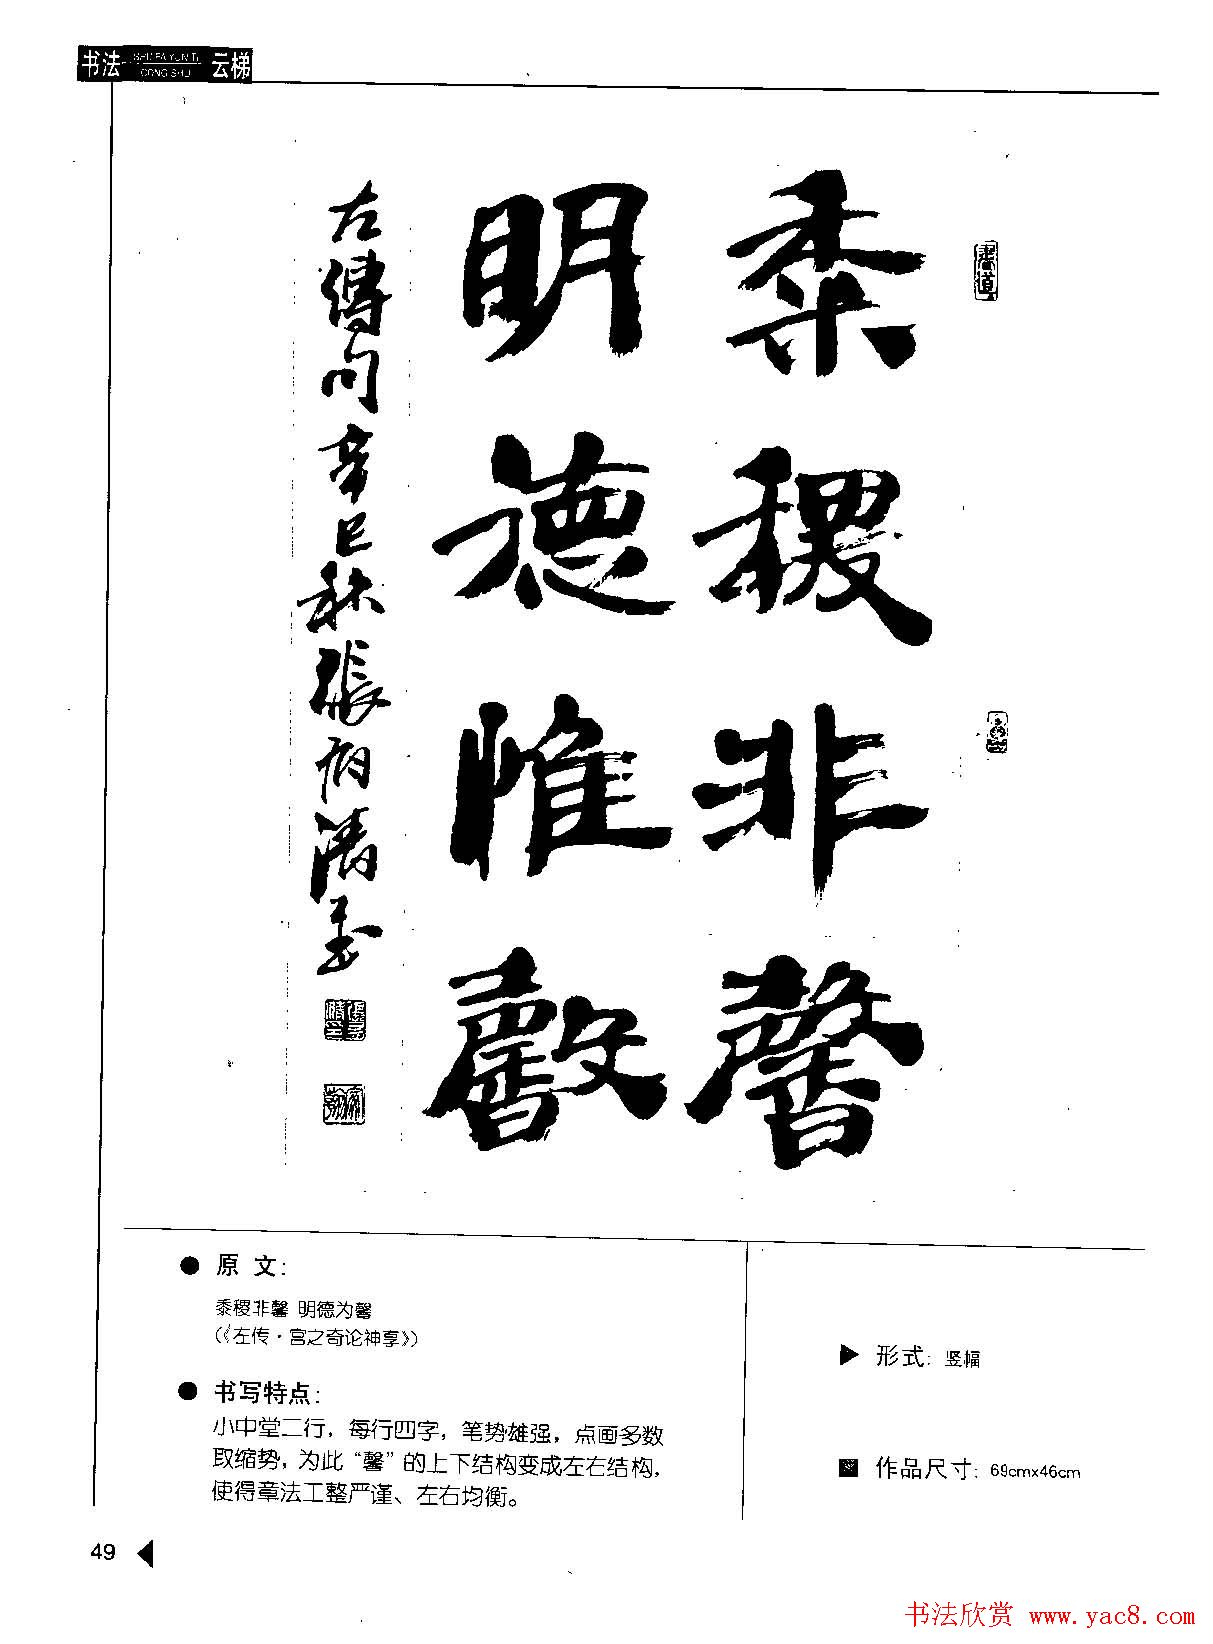 书法 SHU FA YUN TI 云梯
CONG SHU
黍稷非馨
明德惟馨
左傳句辛巳秋張
書道
● 原 文：
黍稷非馨 明德为馨
（《左传·宫之奇论神享》）
● 书写特点：
小中堂二行，每行四字，笔势雄强，点画多数
取缩势，为此“馨”的上下结构变成左右结构，
使得章法工整严谨、左右均衡。
▶ 形式：竖幅
■ 作品尺寸：69cmx46cm
49
书法欣赏 www.yac8.com